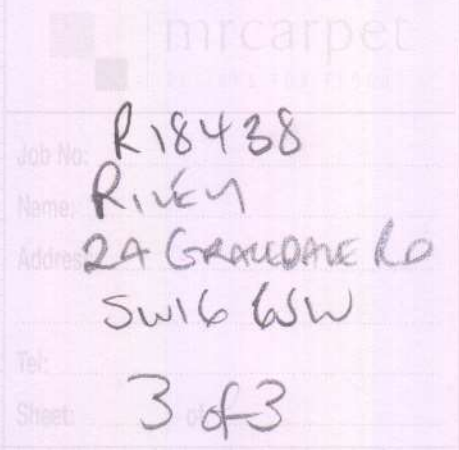 mrcarpet
Job No: R18438
Name: RILEY
Address: 2A GRACEDALE RD
SW16 6SW
Tel:
Sheet: 3 of 3